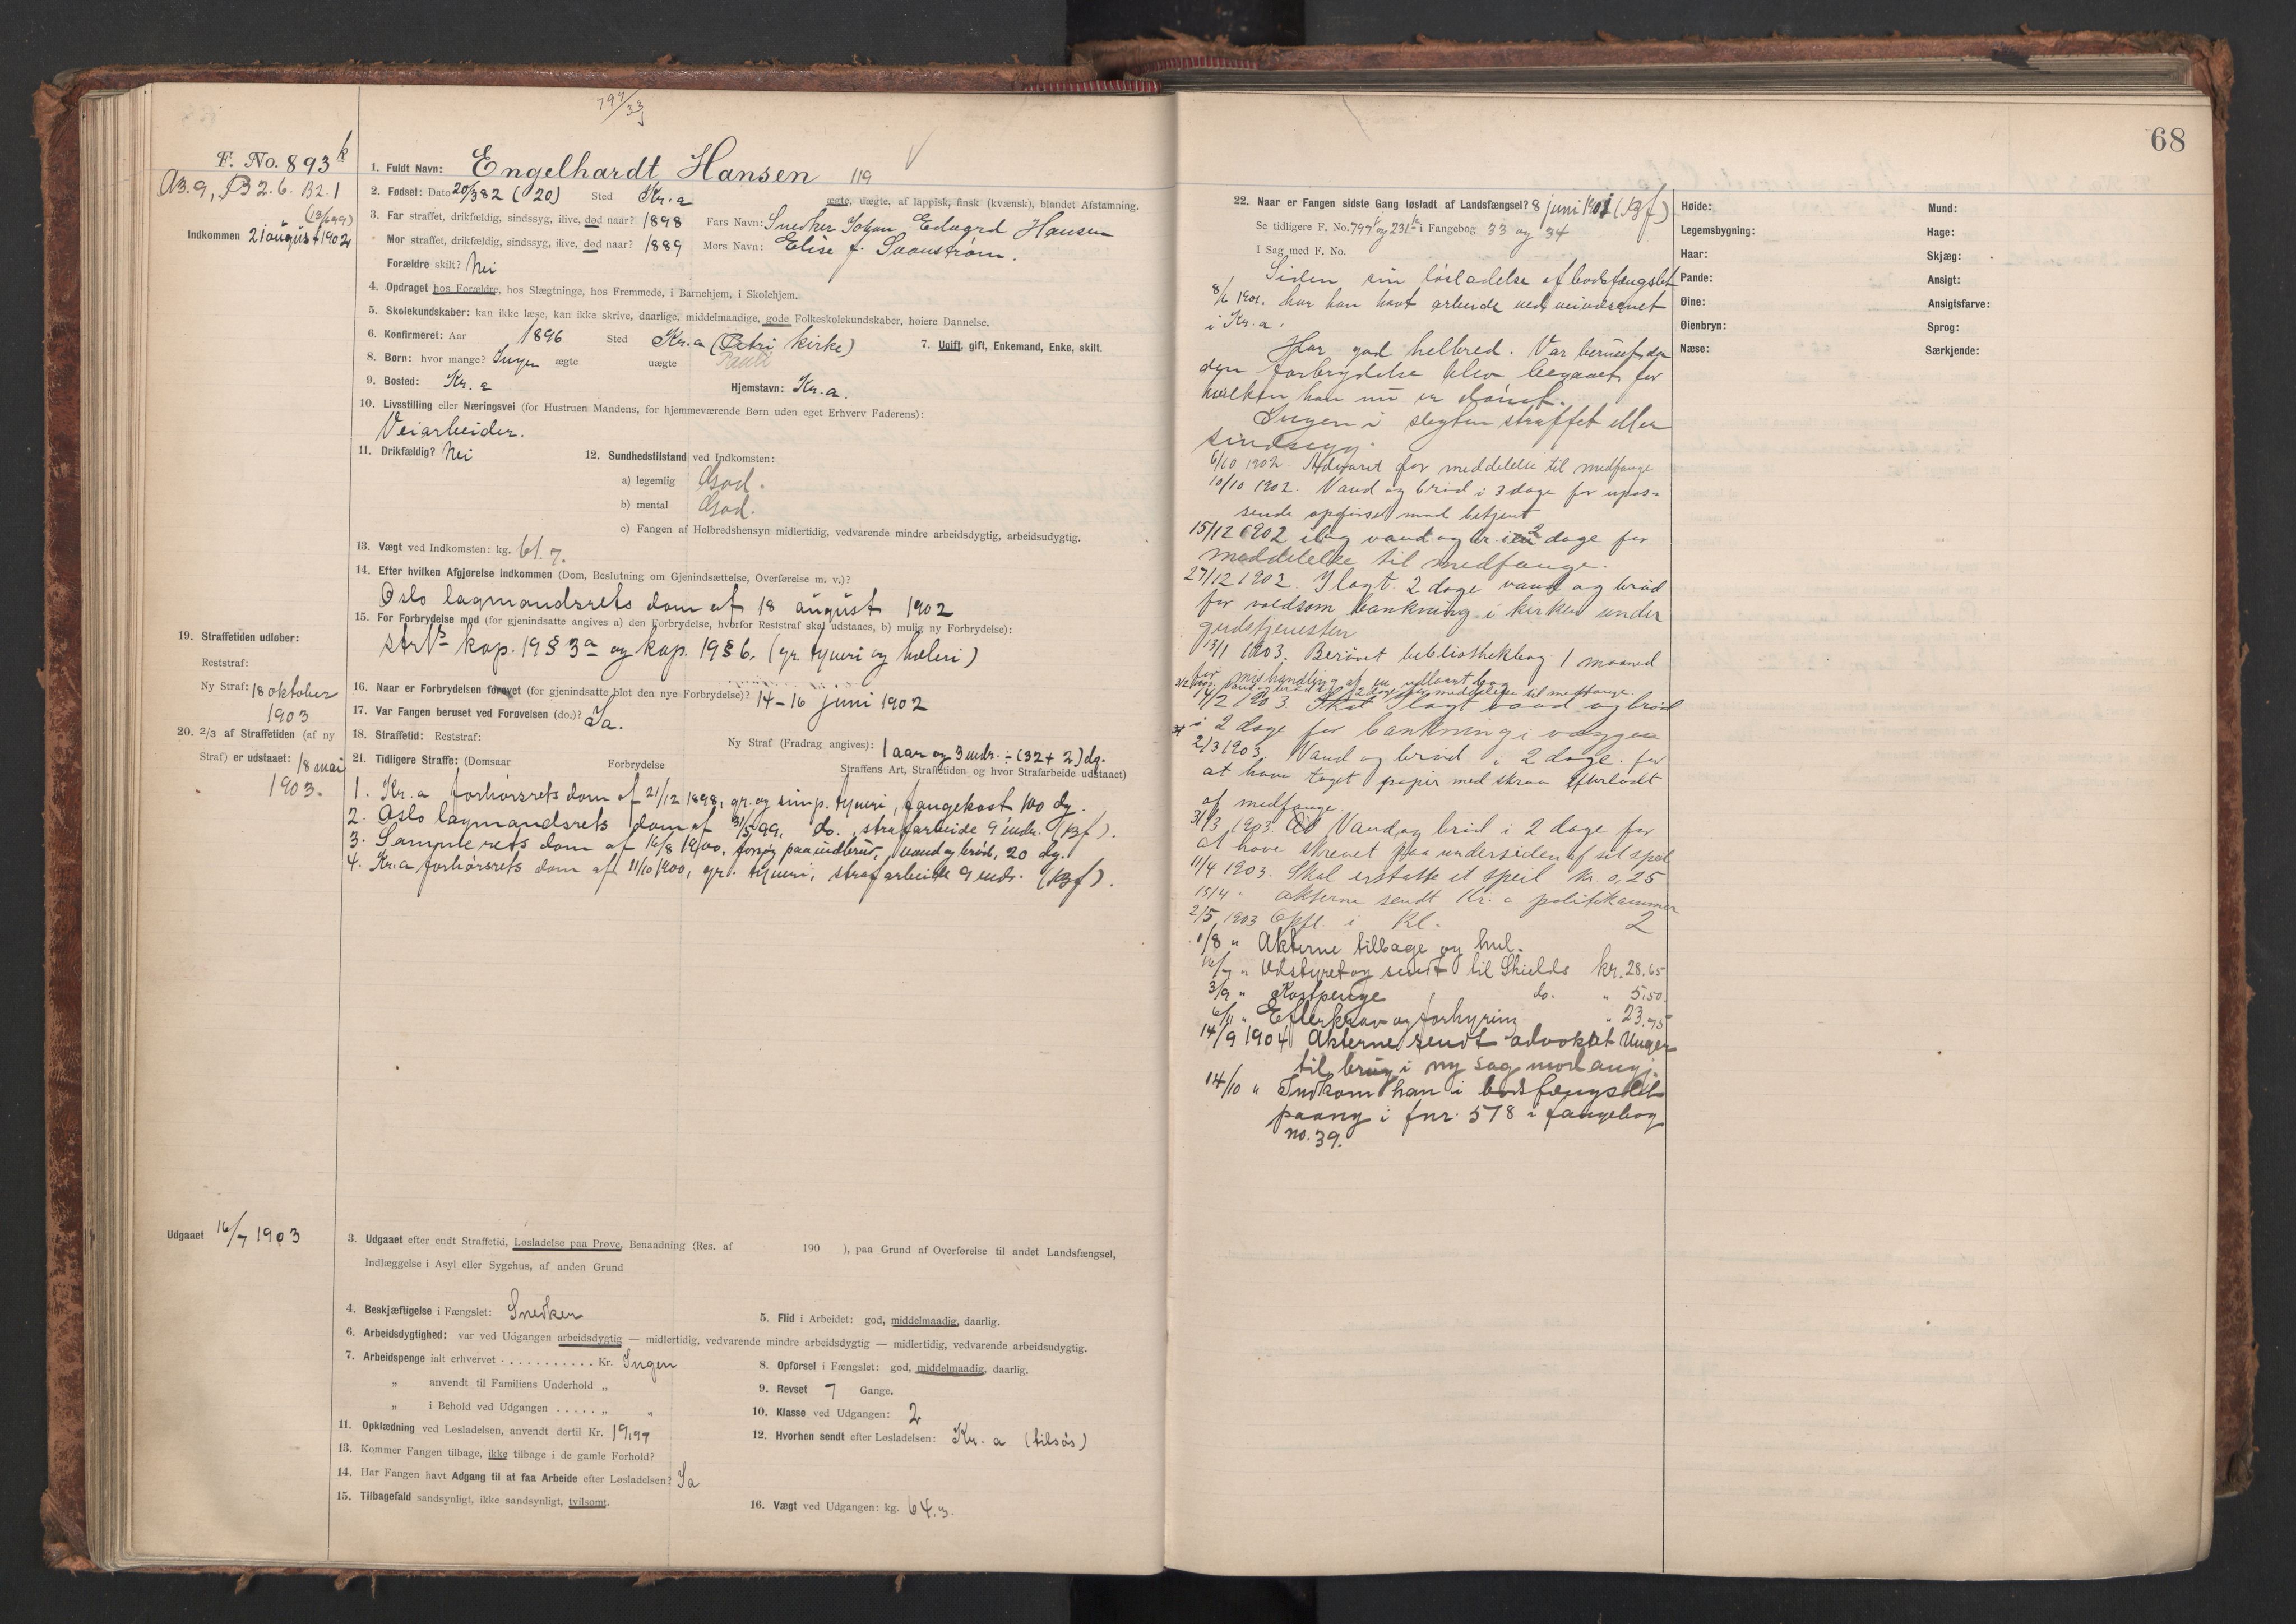 797/33
F. No. 893 k
A3.9, B2.6. B2.1
(13/6 99)
Indkommen 21 august 1902
1. Fuldt Navn: Engelhardt Hansen 119 V
2. Fødsel: Dato 20/3 82 (20) Sted Kr.a
ægte, uægte, af lappisk, finsk (kvænsk), blandet Afstamning.
3. Far straffet, drikfældig, sindssyg, ilive, død naar? 1898 Fars Navn: Snedker Johan Edvard Hansen
Mor straffet, drikfældig, sindssyg, ilive, død naar? 1889 Mors Navn: Elise f. Svanstrøm.
Forældre skilt? Nei
4. Opdraget hos Forældre, hos Slægtninge, hos Fremmede, i Barnehjem, i Skolehjem.
5. Skolekundskaber: kan ikke læse, kan ikke skrive, daarlige, middelmaadige, gode Folkeskolekundskaber, høiere Dannelse.
6. Konfirmeret: Aar 1896 Sted Kr.a (Petri kirke) 7. Ugift, gift, Enkemand, Enke, skilt.
Pauli
8. Børn: hvor mange? Ingen ægte uægte
9. Bosted: Kr.a Hjemstavn: Kr.a.
10. Livsstilling eller Næringsvei (for Hustruen Mandens, for hjemmeværende Børn uden eget Erhverv Faderens):
Veiarbeider.
11. Drikfældig? Nei 12. Sundhedstilstand ved Indkomsten:
a) legemlig God.
b) mental God.
c) Fangen af Helbredshensyn midlertidig, vedvarende mindre arbeidsdygtig, arbeidsudygtig.
13. Vægt ved Indkomsten: kg. 61.7.
14. Efter hvilken Afgjørelse indkommen (Dom, Beslutning om Gjenindsættelse, Overførelse m. v.)?
Oslo lagmandsrets dom af 18 august 1902
15. For Forbrydelse mod (for gjenindsatte angives a) den Forbrydelse, hvorfor Reststraf skal udstaaes, b) mulig ny Forbrydelse):
kap. 19 § 3 a og kap. 19 § 6, (gr. tyveri og hæleri)
16. Naar er Forbrydelsen forøvet (for gjenindsatte blot den nye Forbrydelse)? 14-16 juni 1902
17. Var Fangen beruset ved Forøvelsen (do.)? Ja.
18. Straffetid: Reststraf:
Ny Straf (Fradrag angives): 1 aar og 3 mdr. ÷ (32 + 2) dg.
19. Straffetiden udløber:
Reststraf:
Ny Straf: 18 oktober
1903
20. 2/3 af Straffetiden (af ny
Straf) er udstaaet: 18 mai
1903.
21. Tidligere Straffe: (Domsaar Forbrydelse Straffens Art, Straffetiden og hvor Strafarbeide udstaaet)
1. Kr.a forhørsrets dom af 21/12 1898, gr. og simp. tyveri, fangekost 100 dg.
2. Oslo lagmandsrets dom af 31/5 99, do. strafarbeide 9 mdr. (Bf).
3. Samme rets dom af 16/8 1900, forsøg paa indbrud, vand og brød, 20 dg.
4. Kr.a forhørsrets dom af 11/10 1900, gr. tyveri, strafarbeide 9 mdr. (Bf).
Udgaaet 16/7 1903
3. Udgaaet efter endt Straffetid, Løsladelse paa Prøve, Benaadning (Res. af 190 ), paa Grund af Overførelse til andet Landsfængsel,
Indlæggelse i Asyl eller Sygehus, af anden Grund
4. Beskjæftigelse i Fængslet: Snedker 5. Flid i Arbeidet: god, middelmaadig, daarlig.
6. Arbeidsdygtighed: var ved Udgangen arbeidsdygtig — midlertidig, vedvarende mindre arbeidsdygtig — midlertidig, vedvarende arbeidsudygtig.
7. Arbeidspenge ialt erhvervet ........... Kr. Ingen 8. Opførsel i Fængslet: god, middelmaadig, daarlig.
„ anvendt til Familiens Underhold „ 9. Revset 7 Gange.
„ i Behold ved Udgangen ..... „ „ 10. Klasse ved Udgangen: 2
11. Opklædning ved Løsladelsen, anvendt dertil Kr. 19,97 12. Hvorhen sendt efter Løsladelsen: Kr.a (tilsøs)
13. Kommer Fangen tilbage, ikke tilbage i de gamle Forhold?
14. Har Fangen havt Adgang til at faa Arbeide efter Løsladelsen? Ja
15. Tilbagefald sandsynligt, ikke sandsynligt, tvilsomt. 16. Vægt ved Udgangen: kg. 64.3.
68
22. Naar er Fangen sidste Gang løsladt af Landsfængsel? 8 juni 1901 (Bf)
Se tidligere F. No. 797 og 231 k i Fangebog 33 og 34
I Sag med F. No.
Siden sin løsladelse af bodsfængslet
8/6 1901. har han havt arbeide ved veivæsenet
i Kr.a.
Har god helbred. Var beruset da
den forbrydelse blev begaaet for
hvilken han nu er dømt.
Ingen i slegten straffet eller
sindssyg.
6/10 1902. Advaret for meddelelse til medfange
10/10 1902. Vand og brød i 3 dage for upas=
sende opførsel mod betjent
15/12 1902 ilag vand og br. i 2 dage for
meddelelse til medfange.
27/12 1902. Ilagt 2 dage vand og brød
for voldsom bankning i kirken under
gudstjenesten
13/1 1903. Berøvet bibliothekbog 1 maaned
for mishandling af en udlaant bog
3/2 1903. Vand og brød i 2 dage for meddelelse til medfange.
14/2 1903. Ilagt vand og brød
i 2 dage for bankning i væggen
2/3 1903. Vand og brød i 2 dage for
at have taget papir med skraa efterladt
af medfange.
31/3 1903. Vand og brød i 2 dage for
at have skrevet paa undersiden af sit speil
11/4 1903. Skal erstatte et speil kr. 0,25
15/4 " akterne sendt Kr.a politikammer
2/5 1903 Opfl. i Kl. 2
1/8 " Akterne tilbage og hul.
16/7 " Udstyret og sendt til Shields kr. 28.65
3/9 " Kostpenge do. " 5,50
6/11 " Efterkrav og forhyring " 23,75
14/9 1904 Akterne sendt advokat Unger
til brug i ny sag mod angj.
14/10 " Indkom han i bodsfængslet
paany i fnr. 578 i fangebog
no. 39.
Høide:
Legemsbygning:
Haar:
Pande:
Øine:
Øienbryn:
Næse:
Mund:
Hage:
Skjæg:
Ansigt:
Ansigtsfarve:
Sprog:
Særkjende: